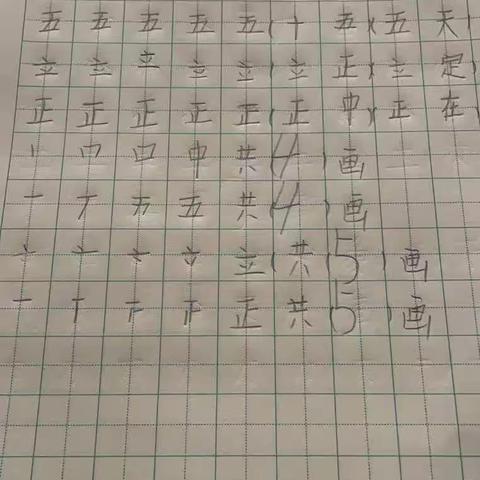 五 五 五 五 五(十 五)(五 天)
立 立 立 立 立(立 正)(立 定)
正 正 正 正 正(正 中)(正 在)
丨 冂 口 中 共(4)画
一 丆 五 五 共(4)画
亠 立 共(5)画
一 丅 正 共(5)画